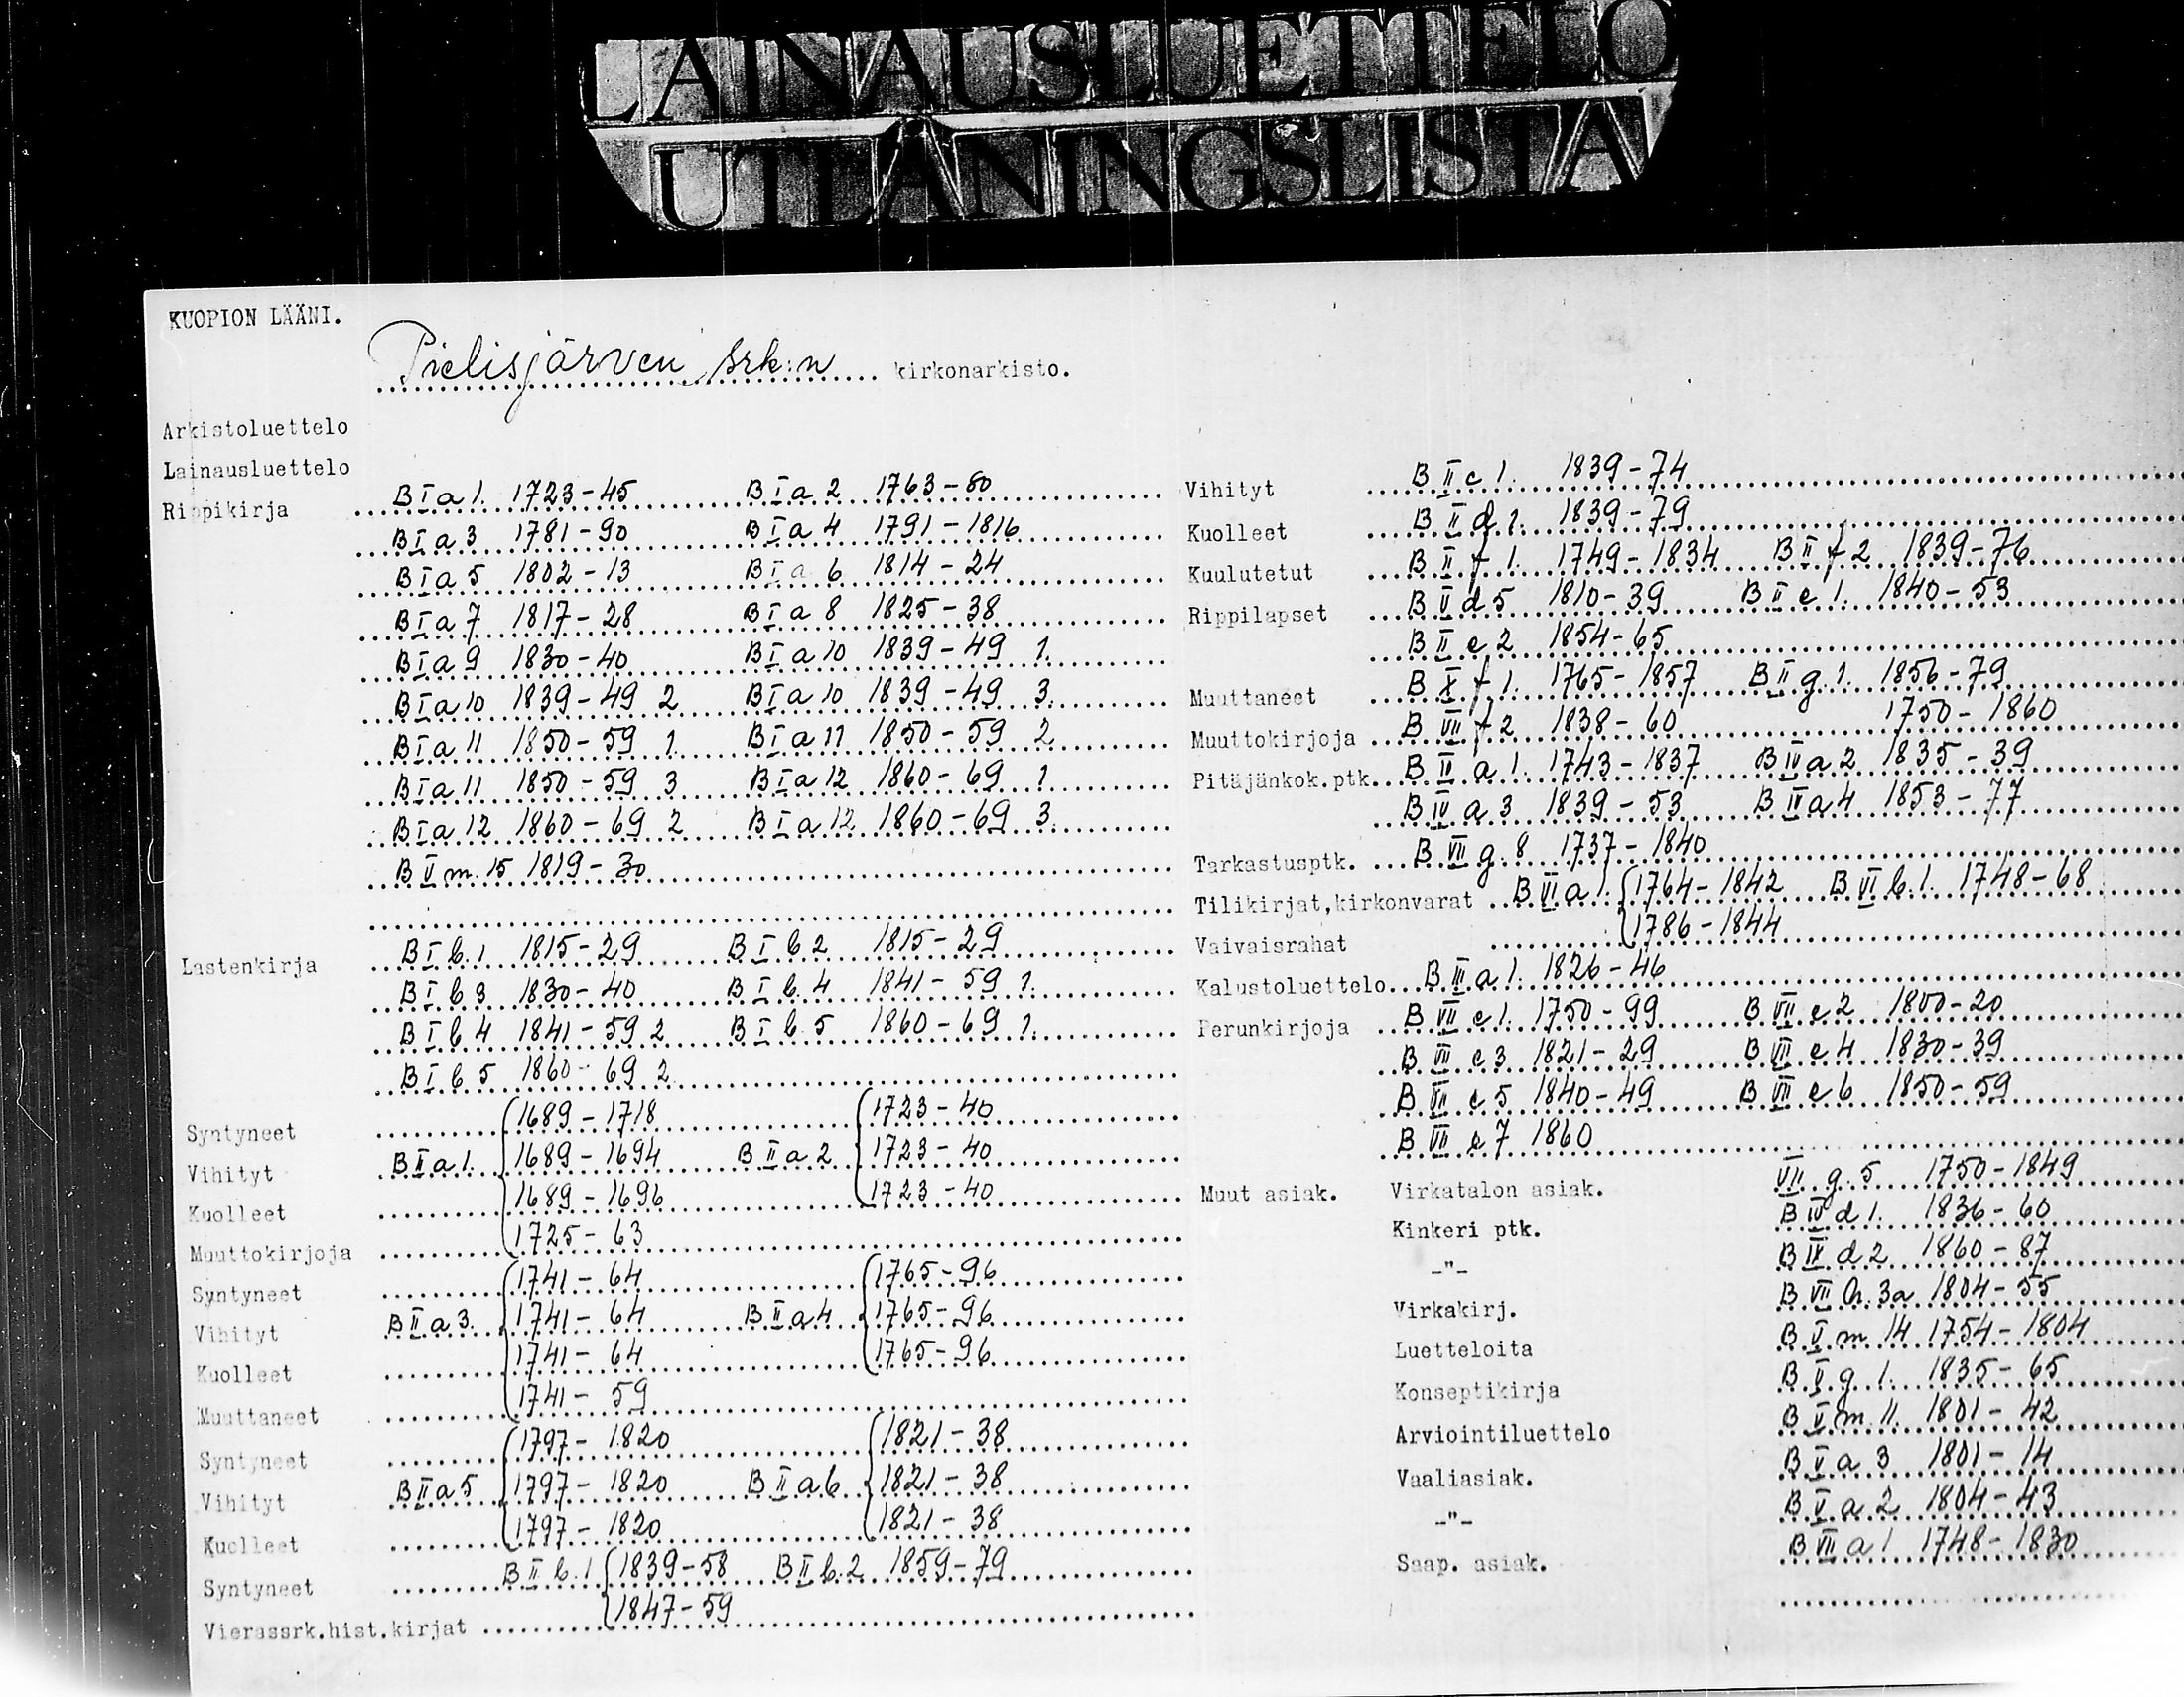 LAINAUSLUETTELO
UTLÅNINGSLISTA
KUOPION LÄÄNI.
Pielisjärven srk:n kirkonarkisto.
Arkistoluettelo
Lainausluettelo
Rippikirja B I a 1. 1723-45 B I a 2 1763-80
B I a 3 1781-90 B I a 4 1791-1816
B I a 5 1802-13 B I a 6 1814-24
B I a 7 1817-28 B I a 8 1825-38
B I a 9 1830-40 B I a 10 1839-49 1.
B I a 10 1839-49 2 B I a 10 1839-49 3.
B I a 11 1850-59 1. B I a 11 1850-59 2
B I a 11 1850-59 3 B I a 12 1860-69 1
B I a 12 1860-69 2 B I a 12 1860-69 3.
B V m. 15 1819-30
Lastenkirja B I b. 1 1815-29 B I b 2 1815-29
B I b 3 1830-40 B I b. 4 1841-59 1.
B I b 4 1841-59 2 B I b 5 1860-69 1.
B I b 5 1860-69 2
Syntyneet 1689-1718 1723-40
Vihityt B II a 1. 1689-1694 B II a 2 1723-40
Kuolleet 1689-1696 1723-40
Muuttokirjoja 1725-63
Syntyneet 1741-64 1765-96
Vihityt B II a 3. 1741-64 B II a 4 1765-96
Kuolleet 1741-64 1765-96
Muuttaneet 1741-59
Syntyneet 1797-1820 1821-38
Vihityt B II a 5 1797-1820 B II a 6 1821-38
Kuolleet 1797-1820 1821-38
Syntyneet B II b. 1 1839-58 B II b. 2 1859-79
Vierassrk.hist.kirjat 1847-59
Vihityt B II c 1. 1839-74
Kuolleet B II d 1. 1839-79
Kuulutetut B II f 1. 1749-1834 B II f 2 1839-76
Rippilapset B V d 5 1810-39 B II e 1. 1840-53
B II e 2 1854-65
Muuttaneet B X f 1. 1765-1857 B II g. 1. 1856-79
Muuttokirjoja B VII f 2 1838-60 1750-1860
Pitäjänkok.ptk. B IV a 1. 1743-1837 B IV a 2 1835-39
B IV a 3 1839-53 B IV a 4 1853-77
Tarkastusptk. B VII g. 8 1737-1840
Tilikirjat,kirkonvarat B VI a 1. 1764-1842 B VI b. 1. 1748-68
Vaivaisrahat 1786-1844
Kalustoluettelo B III a 1. 1826-46
Perunkirjoja B VII e 1. 1750-99 B VII e 2 1800-20
B VII e 3 1821-29 B VII e 4 1830-39
B VII e 5 1840-49 B VII e 6 1850-59
B VII e 7 1860
Muut asiak. Virkatalon asiak. VII g. 5 1750-1849
Kinkeri ptk. B IV d 1. 1836-60
-"- B IX d 2 1860-87
Virkakirj. B VII h. 3a 1804-55
Luetteloita B V m 14 1754-1804
Konseptikirja B V g 1. 1835-65
Arviointiluettelo B V m. 11. 1801-42
Vaaliasiak. B V a 3 1801-14
-"- B V a 2 1804-43
Saap. asiak. B VII a 1 1748-1830